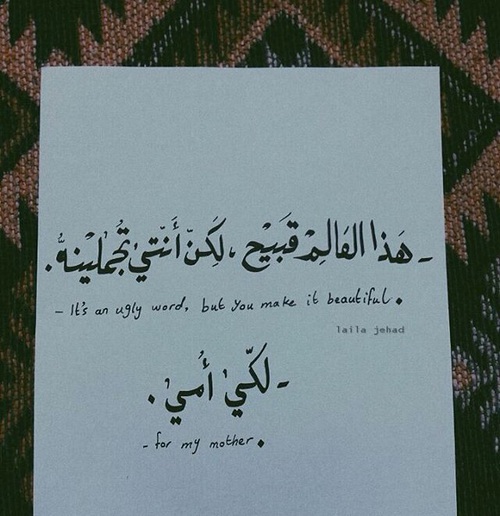 ـ هَذا العَالِمْ قَبَيْح ، لَكِنّ أَنّتيِ تُجْمْلَيْنهُ .
- It's an ugly word, but you make it beautiful.
laila jehad
ـ لكّيِ أُميِ .
- for my mother.